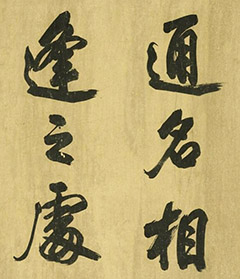 通名相
逢之處